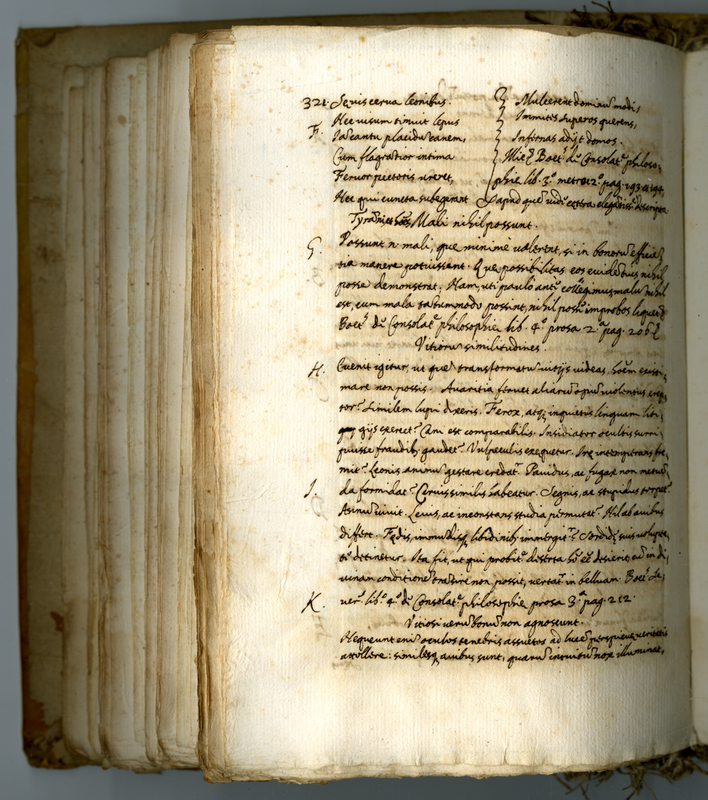 321. Sevis cerva leonibus.
Nec visum timuit lepus
F. Ia cantu placidu canem,
Cum flagratior intima
Fervor pectoris ureret,
Nec qui cuncta subegerant
Mulcerent dominu modi,
Immites superos querens,
Infernas adijt domos.
Boet. de Consolat. philoso,
phie lib. 3. metro 12. pag.
apud que vide extra
Mali nihil possunt.
G. Possunt n. mali, que minime valerent, si in bonoru efficie,
tia manere potuissent. Que possibilitas eos evidetius nihil
posse demonstrat. Nam, uti paulo ante collegimus malu nihil
est, cum mala tatummodo possint, nihil posse improbos liquet
Boet. de Consolat. philosophie lib. 4. prosa 2. pag. 206.
Vitioru similitudines.
H. Evenit igitur, ut que transformatu vitijs videas, hoem existi,
mare non possis. Avaritia fervet alienaru opu violentus erep,
tor? Similem lupi dixeris. Ferox, atq inquietus linguam liti,
gijs exercet? Cani est comparabilis. Insidiator occultis surri,
puisse fraudib. gaudet? Vulpeculis exequetur. Ire intemperans fre,
mit? Leonis animu gestare credat. Pavidus, ac fugax non metue,
I. da formidat? Cervis similis habeatur. Segnis, ac stupidus torpet?
Asinu vivit. Levis, ac inconstans studia permutat? Nil ab avibus
differt. Fedis, immudisq libidinib. immergit? Sordide suis volupta,
te detinetur. Ita fit, ut qui probitate deserta ho ee desierit, cu in di,
vinam conditione trasire non possit, vertat in belluam. Boet. Se,
K. ver. lib. 4. de Consolat. philosophie prosa 3. pag. 212.
Vitiosi veru bonu non agnoscunt.
Nequeunt eni oculos tenebris assuetos ad luce perspicue veritatis
attollere: similesq avibus sunt, quaru intuitu nox illuminat,